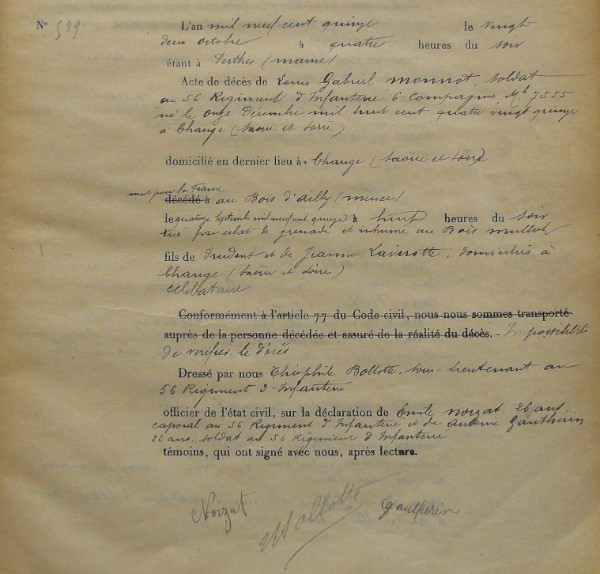 N° 549 L'an mil neuf cent quinze le vingt
deux octobre à quatre heures du soir
étant à Perthes (Marne)
Acte de décès de Louis Gabriel Monnot soldat
au 56 Régiment d'Infanterie 6 Compagnie Mle 7555
né le onze Décembre mil huit cent quatre vingt quinze
à Change (Saône et Loire)
domicilié en dernier lieu à Change (Saône et Loire)
mort pour la France
décédé à au Bois d'Ailly (Meuse)
le quatorze septembre mil neuf cent quinze à huit heures du soir
tué par éclat de grenade et inhumé au Bois Mullot
fils de Prudent et de Jeanne Laverotte, domiciliés à
Change (Saône et Loire)
Célibataire
Conformément à l'article 77 du Code civil, nous nous sommes transporté
auprès de la personne décédée et assuré de la réalité du décès. - Impossibilité
de vérifier le décès
Dressé par nous Théophile Bollotte, Sous-Lieutenant au
56 Régiment d'Infanterie
officier de l'état civil, sur la déclaration de Emile Noizat 26 ans
caporal au 56 Régiment d'Infanterie et de Antoine Gautherin
26 ans, soldat au 56 Régiment d'Infanterie
témoins, qui ont signé avec nous, après lecture.
Noizat Bollotte Gautherin